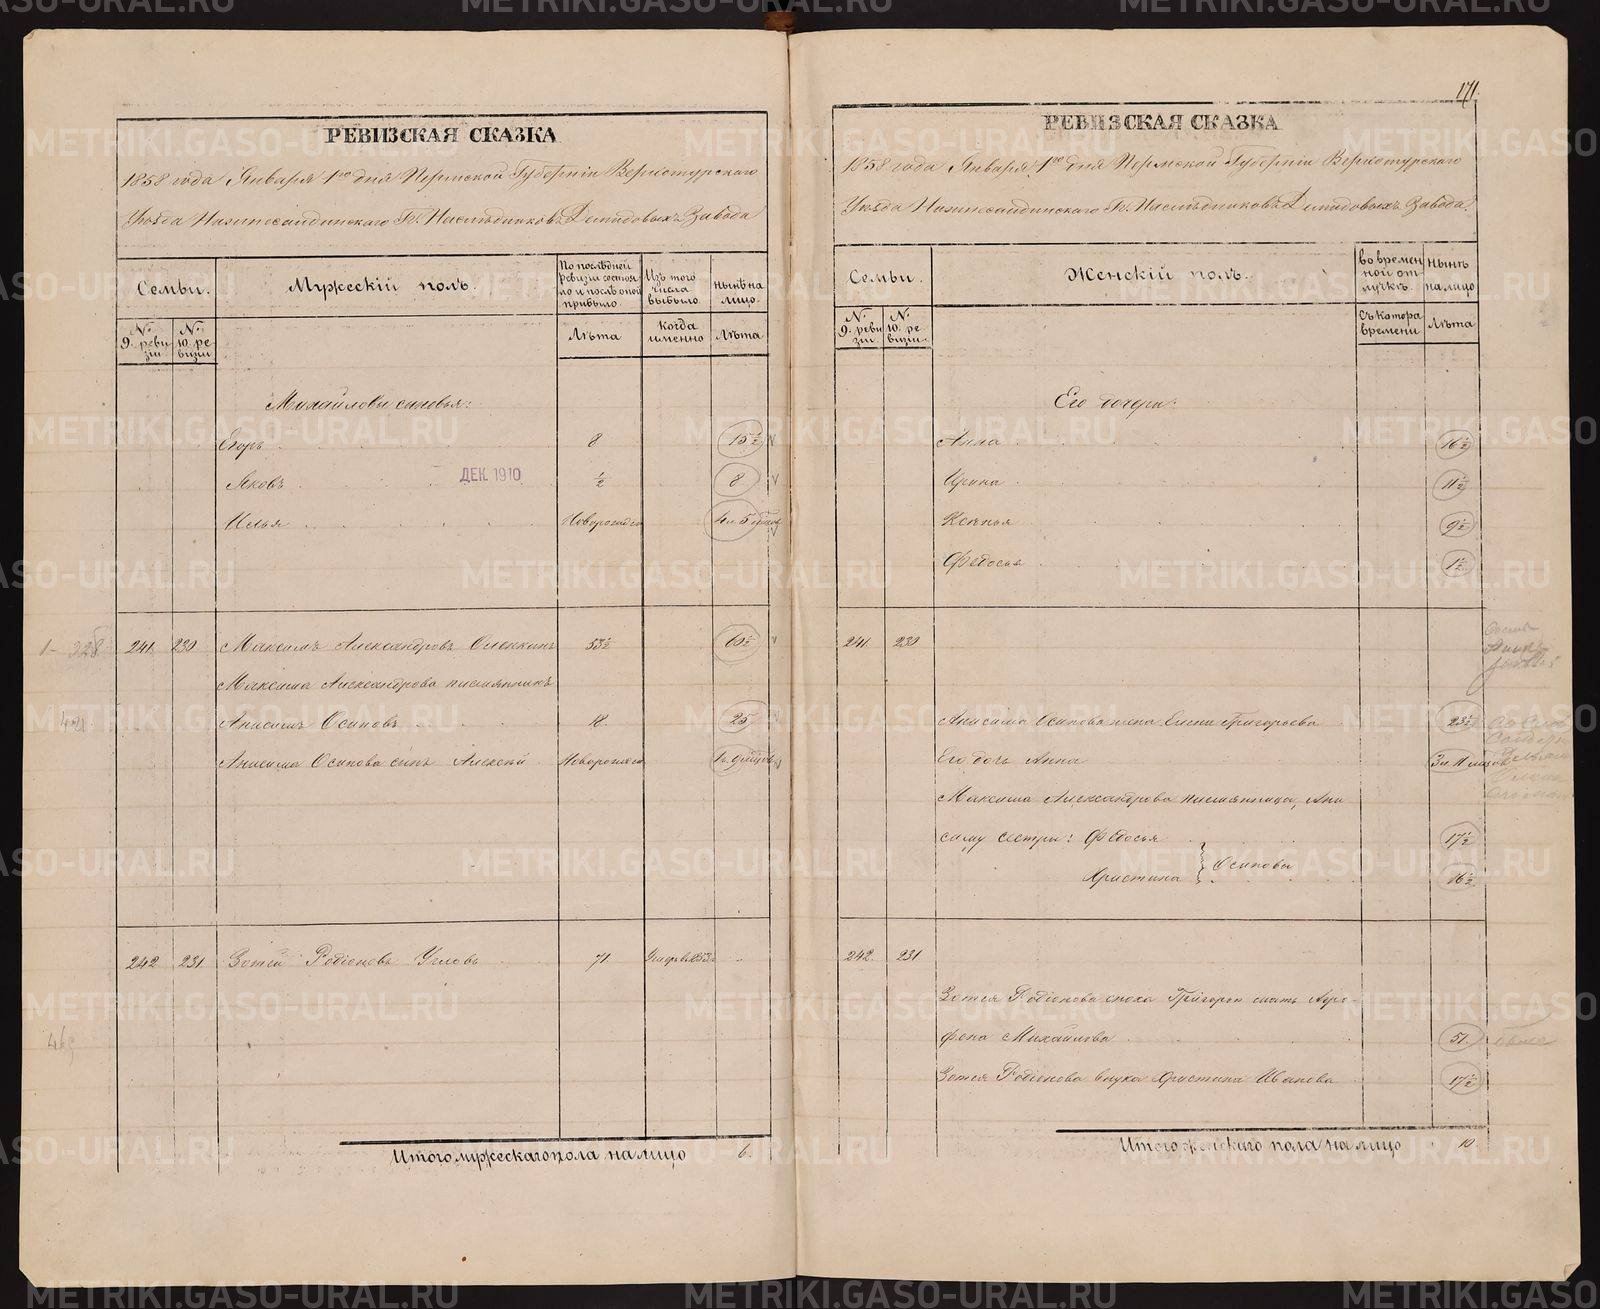 171.
РЕВИЗСКАЯ СКАЗКА
1858 года Января 1го дня Пермской Губерніи Верхотурскаго
Уѣзда Нижнесалдинскаго Гг. Наслѣдниковъ Демидовыхъ Завода
Семьи.
Мужескій полъ.
По послѣдней ревизіи состояло и послѣ оной прибыло.
Изъ того числа выбыло.
нынѣ на лицо.
№ 9. ревизіи
№ 10. ревизіи
Лѣта
когда именно
Лѣта
Михайловы сыновья:
Егоръ 8 15½
Яковъ ДЕК. 1910 ½ 8
Илья Новорожден 4 и 5
1- 328 241. 230 Максимъ Александровъ 53½ 60½
Максима Александрова племянникъ
Анисимъ Осиповъ 18 25
Анисима Осипова сынъ Алексѣй Новорожден
242 231 Зотей Родіоновъ Угловъ 71
Итого мужескаго пола на лицо 6.
РЕВИЗСКАЯ СКАЗКА
1858 года Января 1го дня Пермской Губерніи Верхотурскаго
Уѣзда Нижнесалдинскаго Гг. Наслѣдниковъ Демидовыхъ Завода.
Семьи.
Женскій полъ.
во временной отлучкѣ.
нынѣ на лицо
№ 9. ревизіи
№ 10. ревизіи
Съ котора времени
Лѣта
Его дочери:
Анна 16½
Ирина 11½
Ксенья 9½
Федосья 1½
241. 230
Анисима Осипова жена Елена Григорьева 23½
Его дочь Анна 3 и 11 мѣсяцов
Максима Александрова племянницы, Ани
симу сестры: Федосья 17½
Осиповы
Христина 16½
242. 231
Зотея Родіонова сноха Григорья мать Агро-
фена Михайлова 51.
Зотея Родіонова внука Христина Иванова 17½
Итого женскаго пола на лицо 10
METRIKI.GASO-URAL.RU